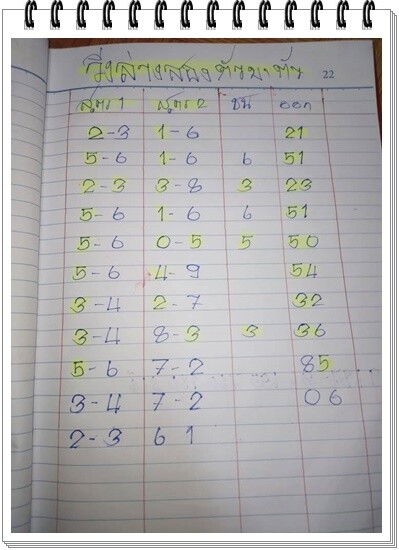 วิ่งล่างสองตัวมาตัว 22
สูตร 1 สูตร 2 ชน ออก
2-3 1-6 21
5-6 1-6 6 51
2-3 3-8 3 23
5-6 1-6 6 51
5-6 0-5 5 50
5-6 4-9 54
3-4 2-7 32
3-4 8-3 3 36
5-6 7-2 85
3-4 7-2 06
2-3 6 1